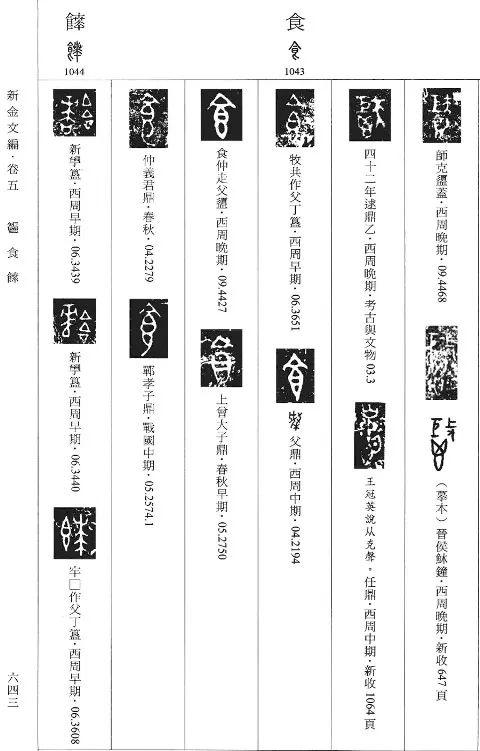 師克盨蓋·西周晚期·09.4468
（摹本）晉侯穌鐘·西周晚期·新收647頁
四十二年逑鼎乙·西周晚期·考古與文物03.3
王冠英說从克聲。任鼎·西周中期·新收1064頁
食
1043
牧共作父丁簋·西周早期·06.3651
父鼎·西周中期·04.2194
食仲走父盨·西周晚期·09.4427
上曾大子鼎·春秋早期·05.2750
仲義君鼎·春秋·04.2279
鄲孝子鼎·戰國中期·05.2574.1
餴
1044
新𡥈簋·西周早期·06.3439
新𡥈簋·西周早期·06.3440
牢□作父丁簋·西周早期·06.3608
新金文編·卷五
食 餴
六四三